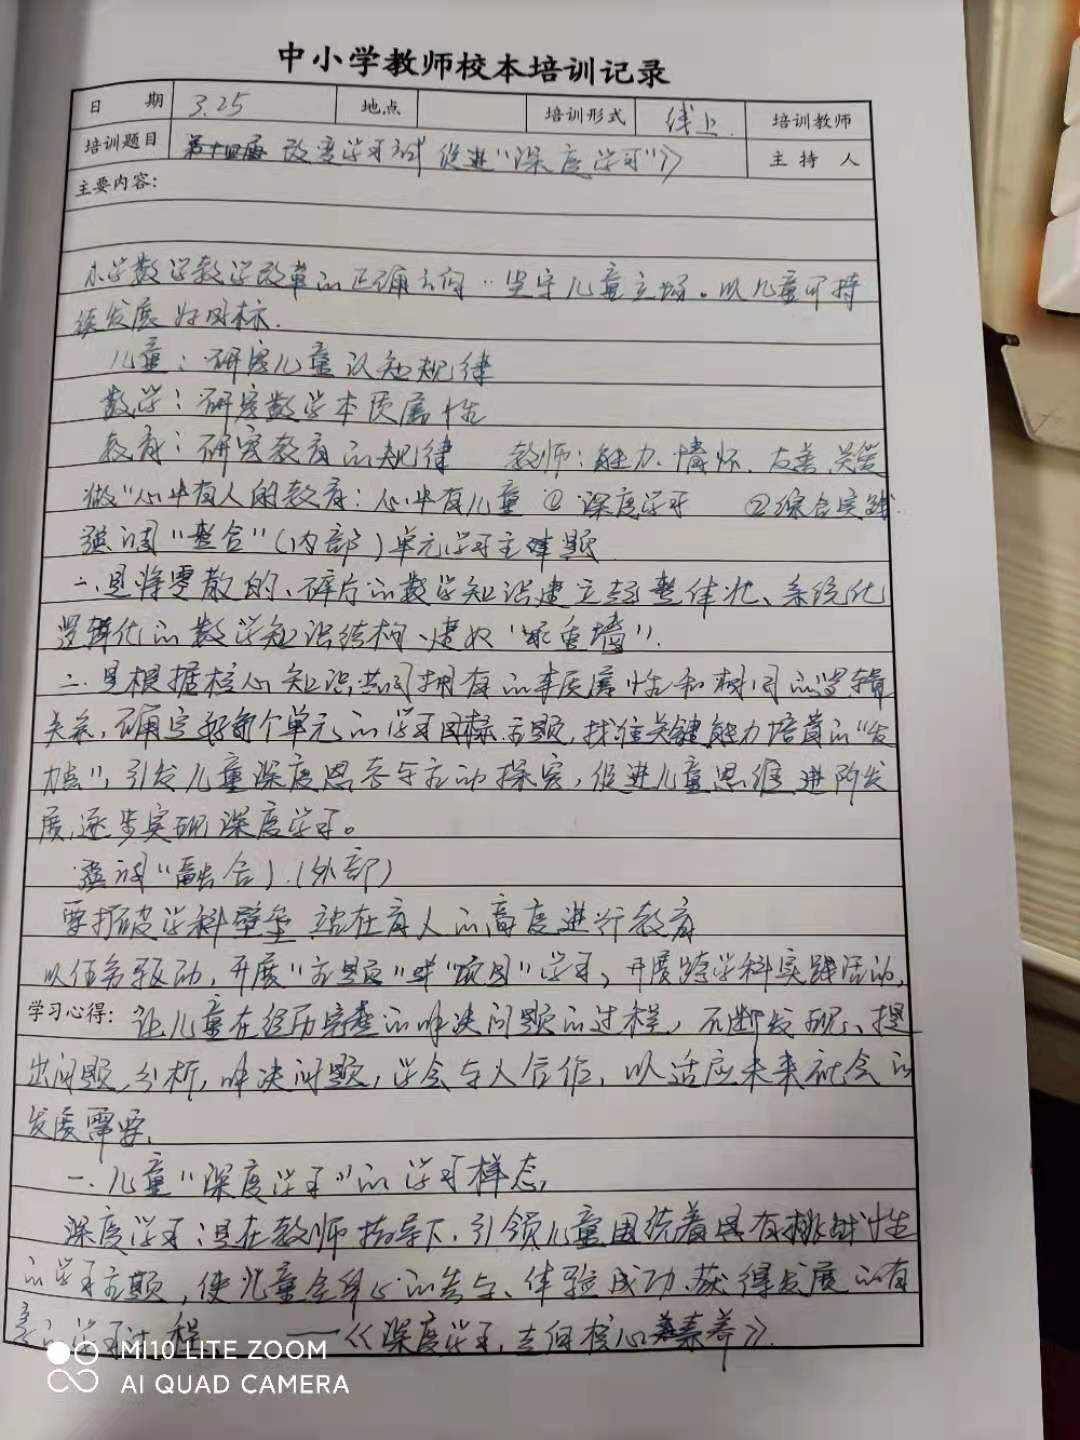 中小学教师校本培训记录
日 期 3.25 地点 培训形式 线上. 培训教师
培训题目 改变学习方式 促进"深度学习"》 主 持 人
主要内容:
小学数学教学改革的正确方向:坚守儿童立场。以儿童可持
续发展为目标.
儿童:研究儿童认知规律
数学:研究数学本质属性
教育:研究教育的规律 教师:能力、情怀、友善、关爱
做"心中有人的教育:心中有儿童 ① 深度学习 ②综合实践.
强调"整合"(内部)单元学习主题
一.是将零散的、碎片的数学知识建立起整体化、系统化
逻辑化的数学知识结构、建好"承重墙".
二.是根据核心知识共同拥有的本质属性和相同的逻辑
关系,确定好每个单元的学习目标主题,找准关键能力培育的"发
力点",引发儿童深度思考与主动探究,促进儿童思维进阶发
展,逐步实现深度学习。
强调"融合).(外部)
要打破学科壁垒 站在育人的高度进行教育
以任务驱动,开展"主题"或"项目"学习,开展跨学科实践活动,
学习心得: 让儿童在经历完整的解决问题的过程,不断发现、提
出问题,分析,解决问题,学会与人合作,以适应未来社会的
发展需要.
一.儿童"深度学习"的学习样态,
深度学习:是在教师指导下,引领儿童围绕着具有挑战性
的学习主题,使儿童全身心的参与、体验成功、获得发展的有
意 的学习过程 ——《深度学习,走向核心素养》.
MI10 LITE ZOOM
AI QUAD CAMERA